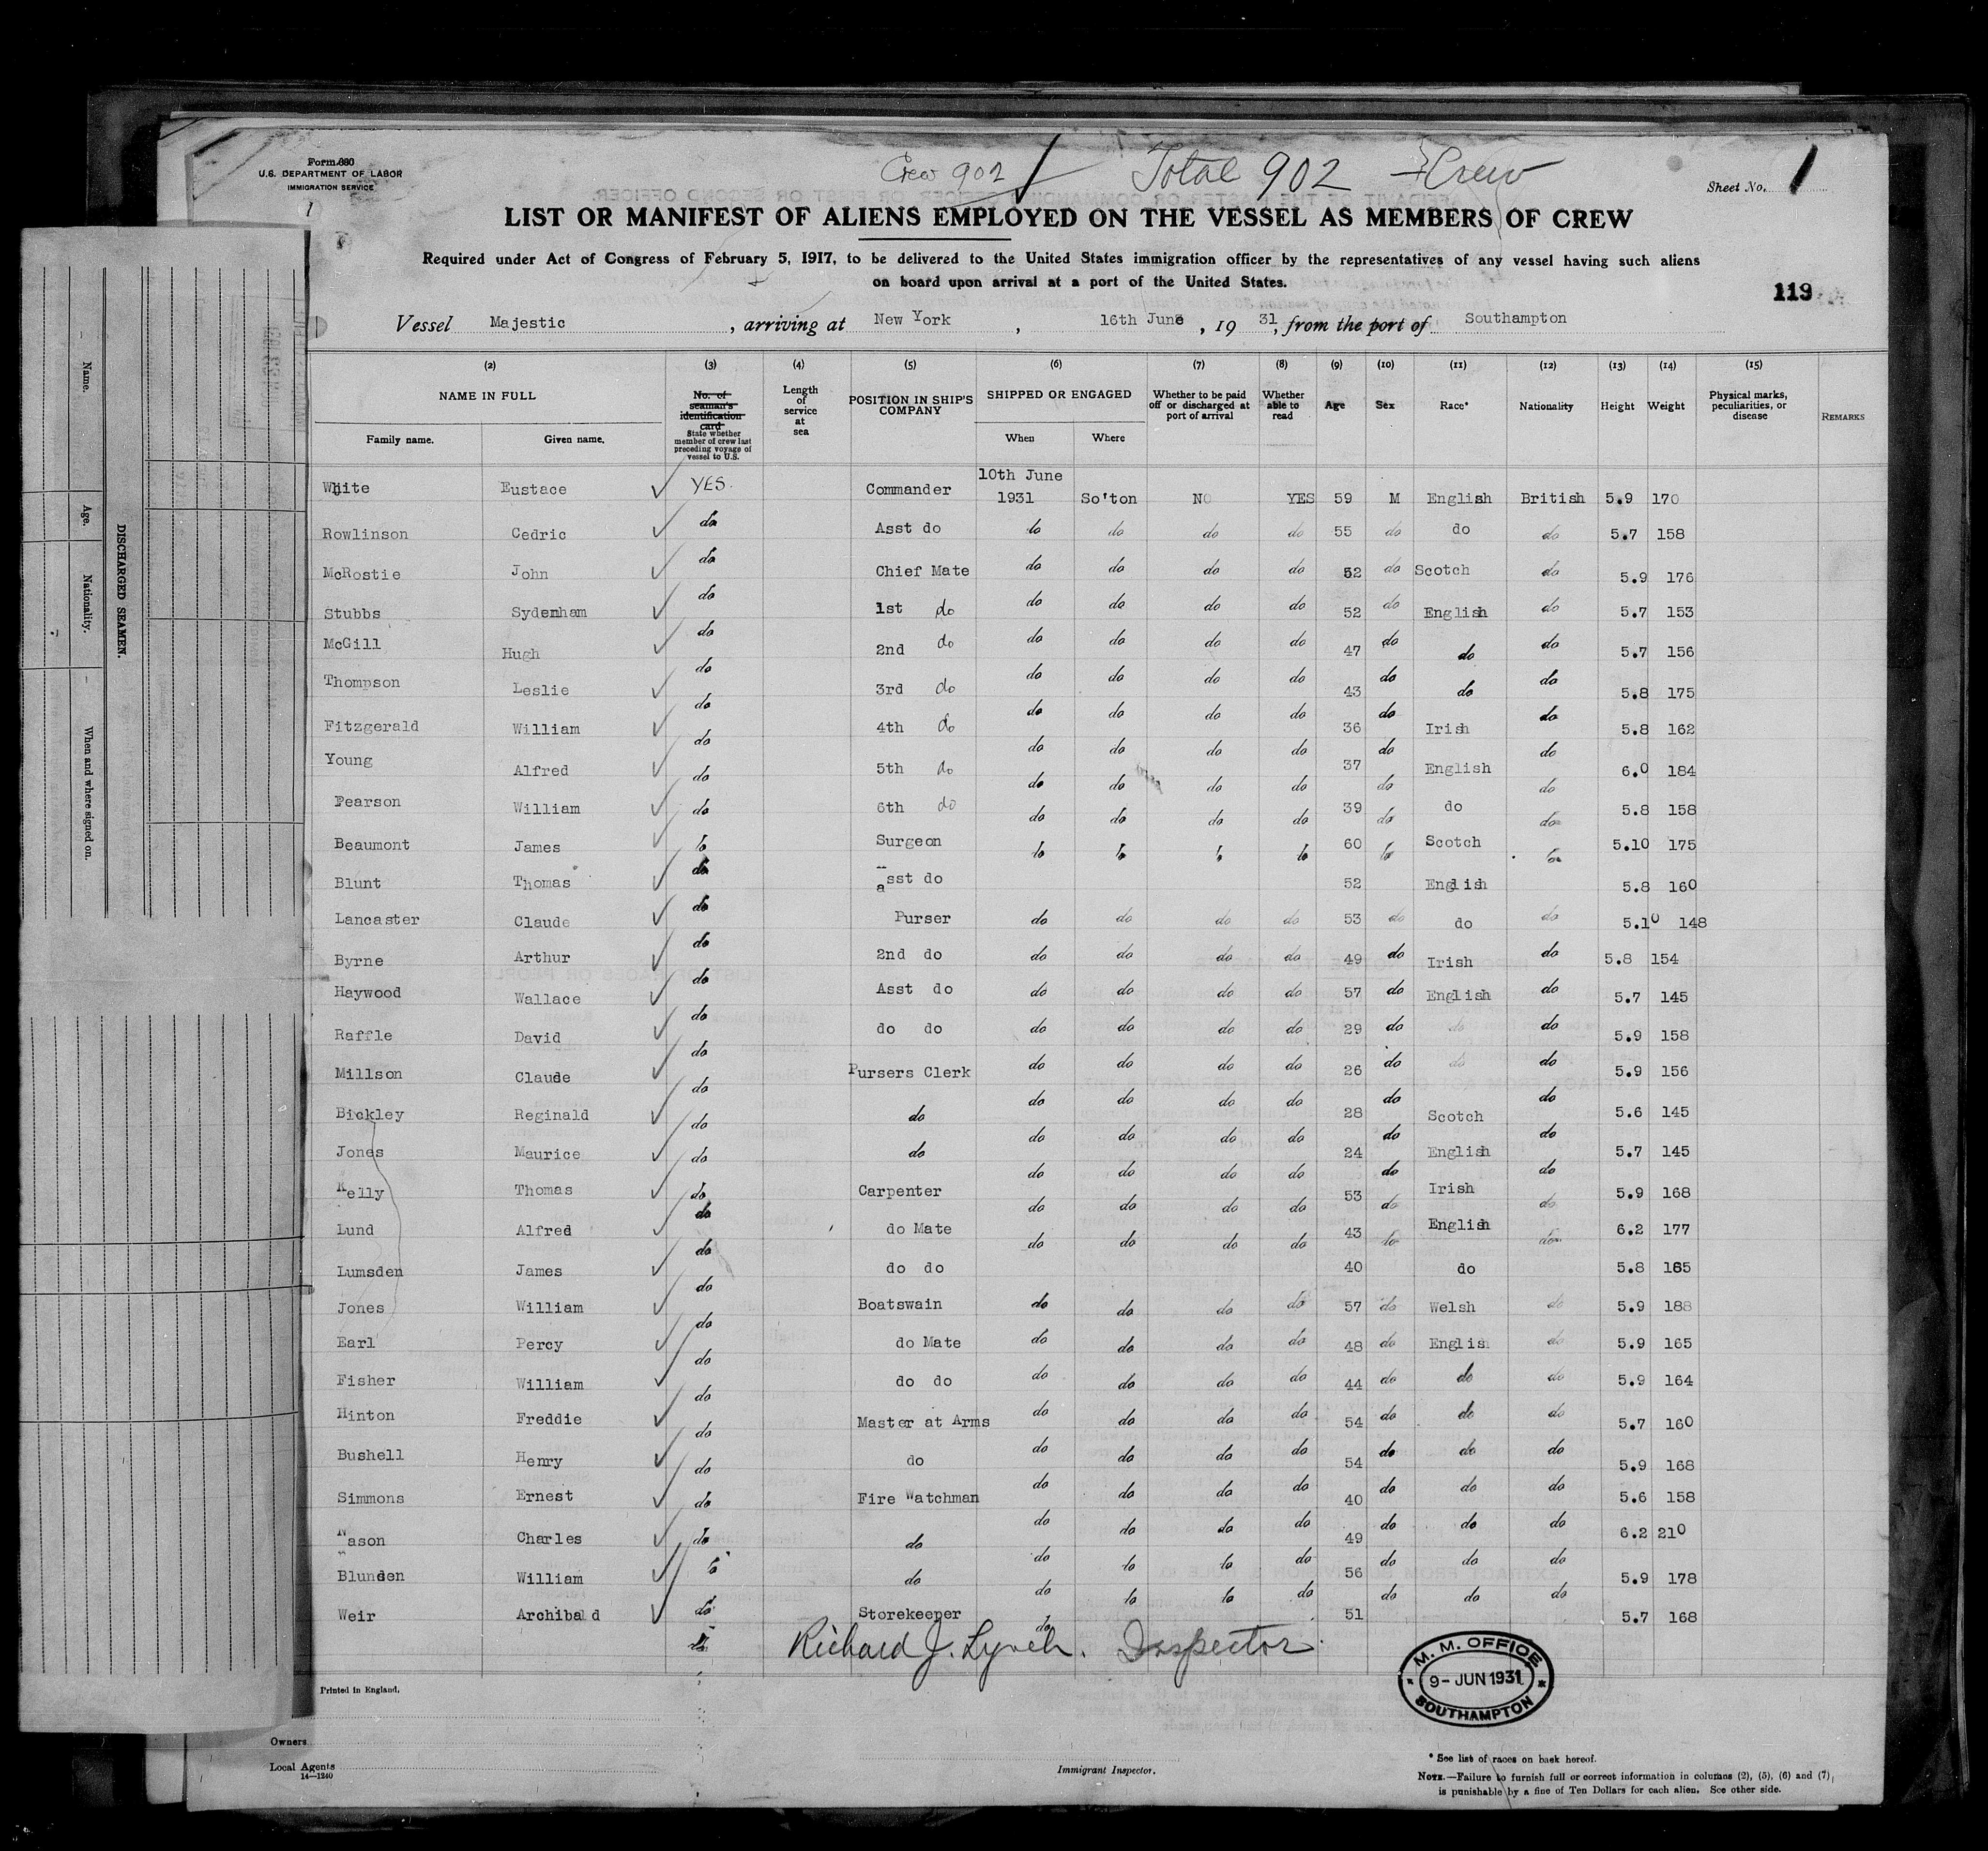 Form 680
U.S. DEPARTMENT OF LABOR
IMMIGRATION SERVICE
Crew 902
Total 902 Crew
Sheet No. 1
LIST OR MANIFEST OF ALIENS EMPLOYED ON THE VESSEL AS MEMBERS OF CREW
Required under Act of Congress of February 5, 1917, to be delivered to the United States immigration officer by the representatives of any vessel having such aliens
on board upon arrival at a port of the United States.
119
Vessel Majestic, arriving at New York, 16th June, 1931, from the port of Southampton
(2) (3) (4) (5) (6) (7) (8) (9) (10) (11) (12) (13) (14) (15)
NAME IN FULL
Family name. Given name.
No. of seaman's identification card
State whether member of crew last preceding voyage of vessel to U.S.
Length of service at sea
POSITION IN SHIP'S COMPANY
SHIPPED OR ENGAGED
When Where
Whether to be paid off or discharged at port of arrival
Whether able to read
Age Sex Race* Nationality Height Weight
Physical marks, peculiarities, or disease
REMARKS
White Eustace YES. Commander 10th June 1931 So'ton NO YES 59 M English British 5.9 170
Rowlinson Cedric do Asst do do do do do 55 do do do 5.7 158
McRostie John do Chief Mate do do do do 52 do Scotch do 5.9 176
Stubbs Sydenham do 1st do do do do do 52 do English do 5.7 153
McGill Hugh do 2nd do do do do do 47 do do do 5.7 156
Thompson Leslie do 3rd do do do do do 43 do do do 5.8 175
Fitzgerald William do 4th do do do do do 36 do Irish do 5.8 162
Young Alfred do 5th do do do do do 37 do English do 6.0 184
Pearson William do 6th do do do do do 39 do do do 5.8 158
Beaumont James do Surgeon do do do do 60 do Scotch do 5.10 175
Blunt Thomas do asst do do do do do 52 do English do 5.8 160
Lancaster Claude do Purser do do do do 53 do do do 5.10 148
Byrne Arthur do 2nd do do do do do 49 do Irish do 5.8 154
Haywood Wallace do Asst do do do do do 57 do English do 5.7 145
Raffle David do do do do do do do 29 do do do 5.9 158
Millson Claude do Pursers Clerk do do do do 26 do do do 5.9 156
Bickley Reginald do do do do do do 28 do Scotch do 5.6 145
Jones Maurice do do do do do do 24 do English do 5.7 145
Kelly Thomas do Carpenter do do do do 53 do Irish do 5.9 168
Lund Alfred do do Mate do do do do 43 do English do 6.2 177
Lumsden James do do do do do do do 40 do do do 5.8 165
Jones William do Boatswain do do do do 57 do Welsh do 5.9 188
Earl Percy do do Mate do do do do 48 do English do 5.9 165
Fisher William do do do do do do do 44 do do do 5.9 164
Hinton Freddie do Master at Arms do do do do 54 do do do 5.7 160
Bushell Henry do do do do do do 54 do do do 5.9 168
Simmons Ernest do Fire Watchman do do do do 40 do do do 5.6 158
Nason Charles do do do do do do 49 do do do 6.2 210
Blunden William do do do do do do 56 do do do 5.9 178
Weir Archibald do Storekeeper do do do do 51 do do do 5.7 168
Richard J. Lynch. Inspector.
M. M. OFFICE
9 - JUN 1931
SOUTHAMPTON
Printed in England.
Owners
Local Agents
14—1240
Immigrant Inspector.
* See list of races on back hereof.
NOTE.—Failure to furnish full or correct information in columns (2), (5), (6) and (7)
is punishable by a fine of Ten Dollars for each alien. See other side.
DISCHARGED SEAMEN.
Name.
Age.
Nationality.
When and where signed on.